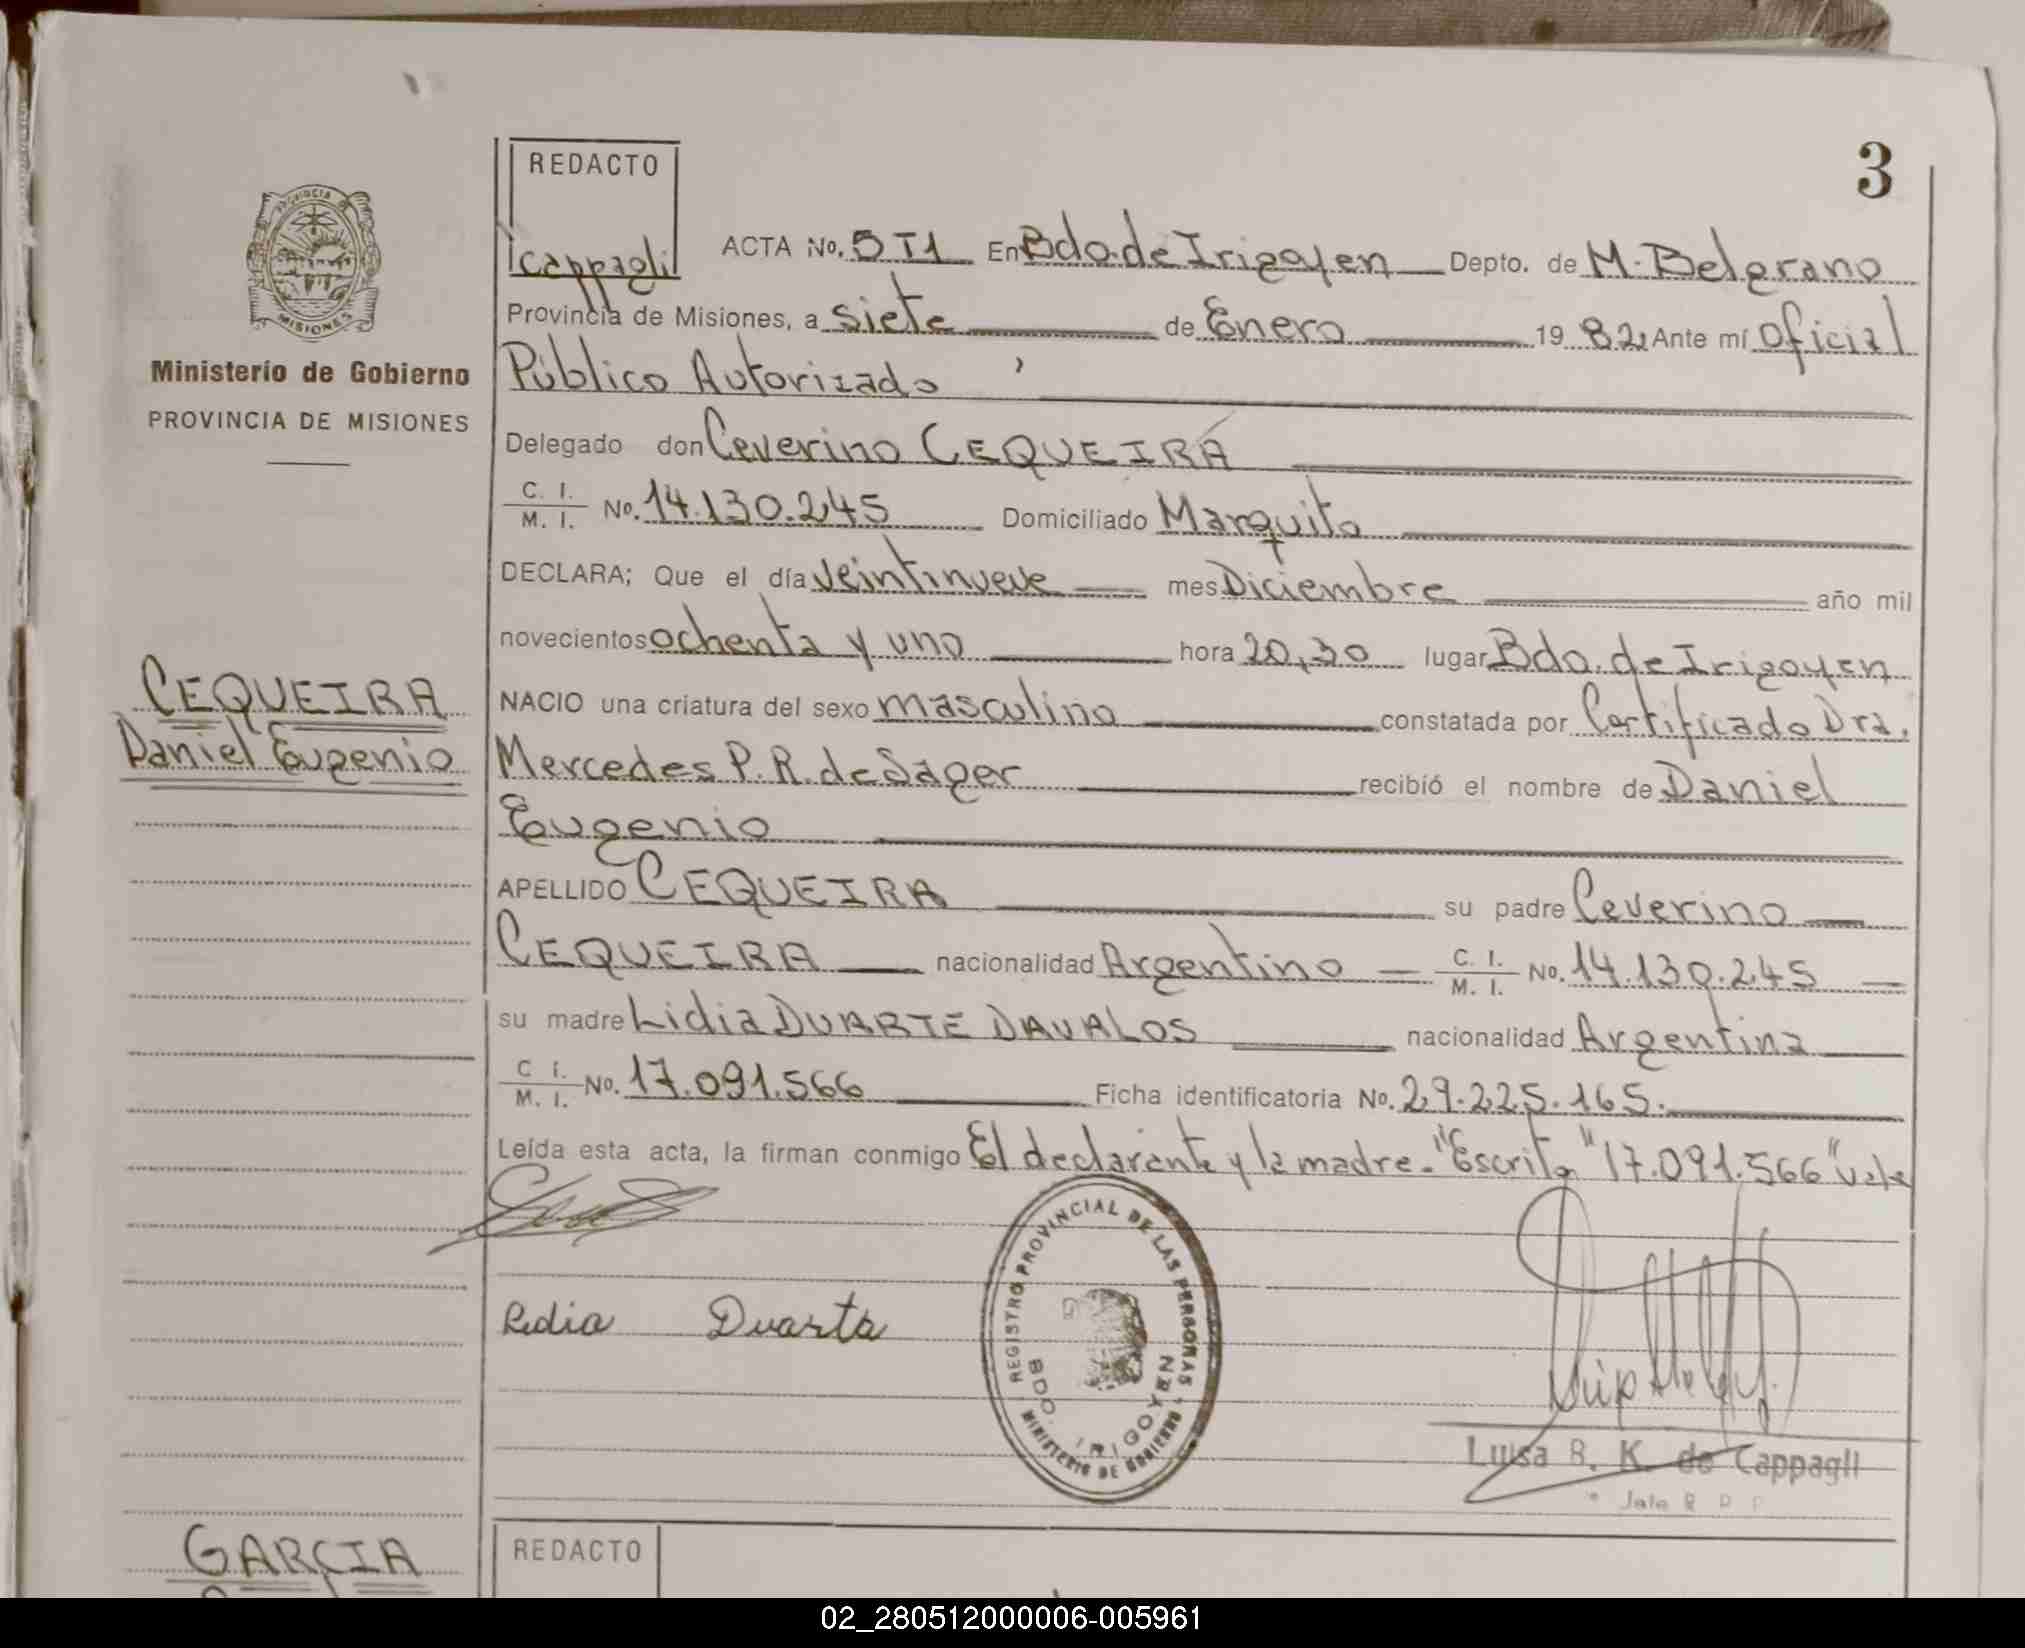 3
REDACTO
Cappagli
ACTA No. 5 T1 En Bdo. de Irigoyen Depto. de M. Belgrano
PROVINCIA
MISIONES
Provincia de Misiones, a siete de Enero 1982, Ante mí Oficial
Ministerio de Gobierno
PROVINCIA DE MISIONES
Público Autorizado
Delegado don Ceverino CEQUEIRA
C. I. / M. I. No. 14.130.245 Domiciliado Marquito
DECLARA; Que el día veintinueve mes Diciembre año mil
novecientos ochenta y uno hora 20,30 lugar Bdo. de Irigoyen
CEQUEIRA
Daniel Eugenio
NACIO una criatura del sexo masculino constatada por Certificado Dra.
Mercedes P. R. de Sager recibió el nombre de Daniel
Eugenio
APELLIDO CEQUEIRA su padre Ceverino
CEQUEIRA nacionalidad Argentino C. I. / M. I. No. 14.130.245
su madre Lidia DUARTE DAVALOS nacionalidad Argentina
C. I. / M. I. No. 17.091.566 Ficha identificatoria No. 29.225.165.
Leída esta acta, la firman conmigo El declarante y la madre. "Escrito" "17.091.566" vale
Lidia Duarte
REGISTRO PROVINCIAL DE LAS PERSONAS
MINISTERIO DE GOBIERNO
BDO. IRIGOYEN
Luisa R. K. de Cappagli
GARCIA
REDACTO
02_280512000006-005961